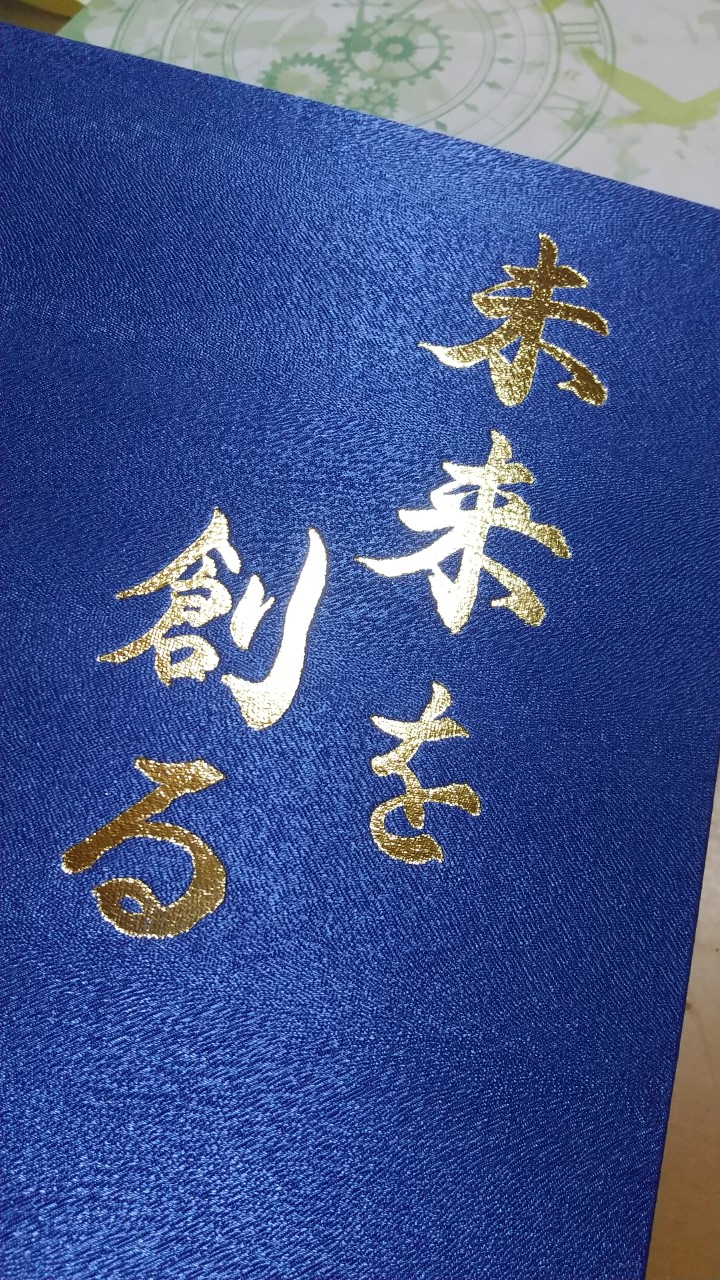 未来を
創る